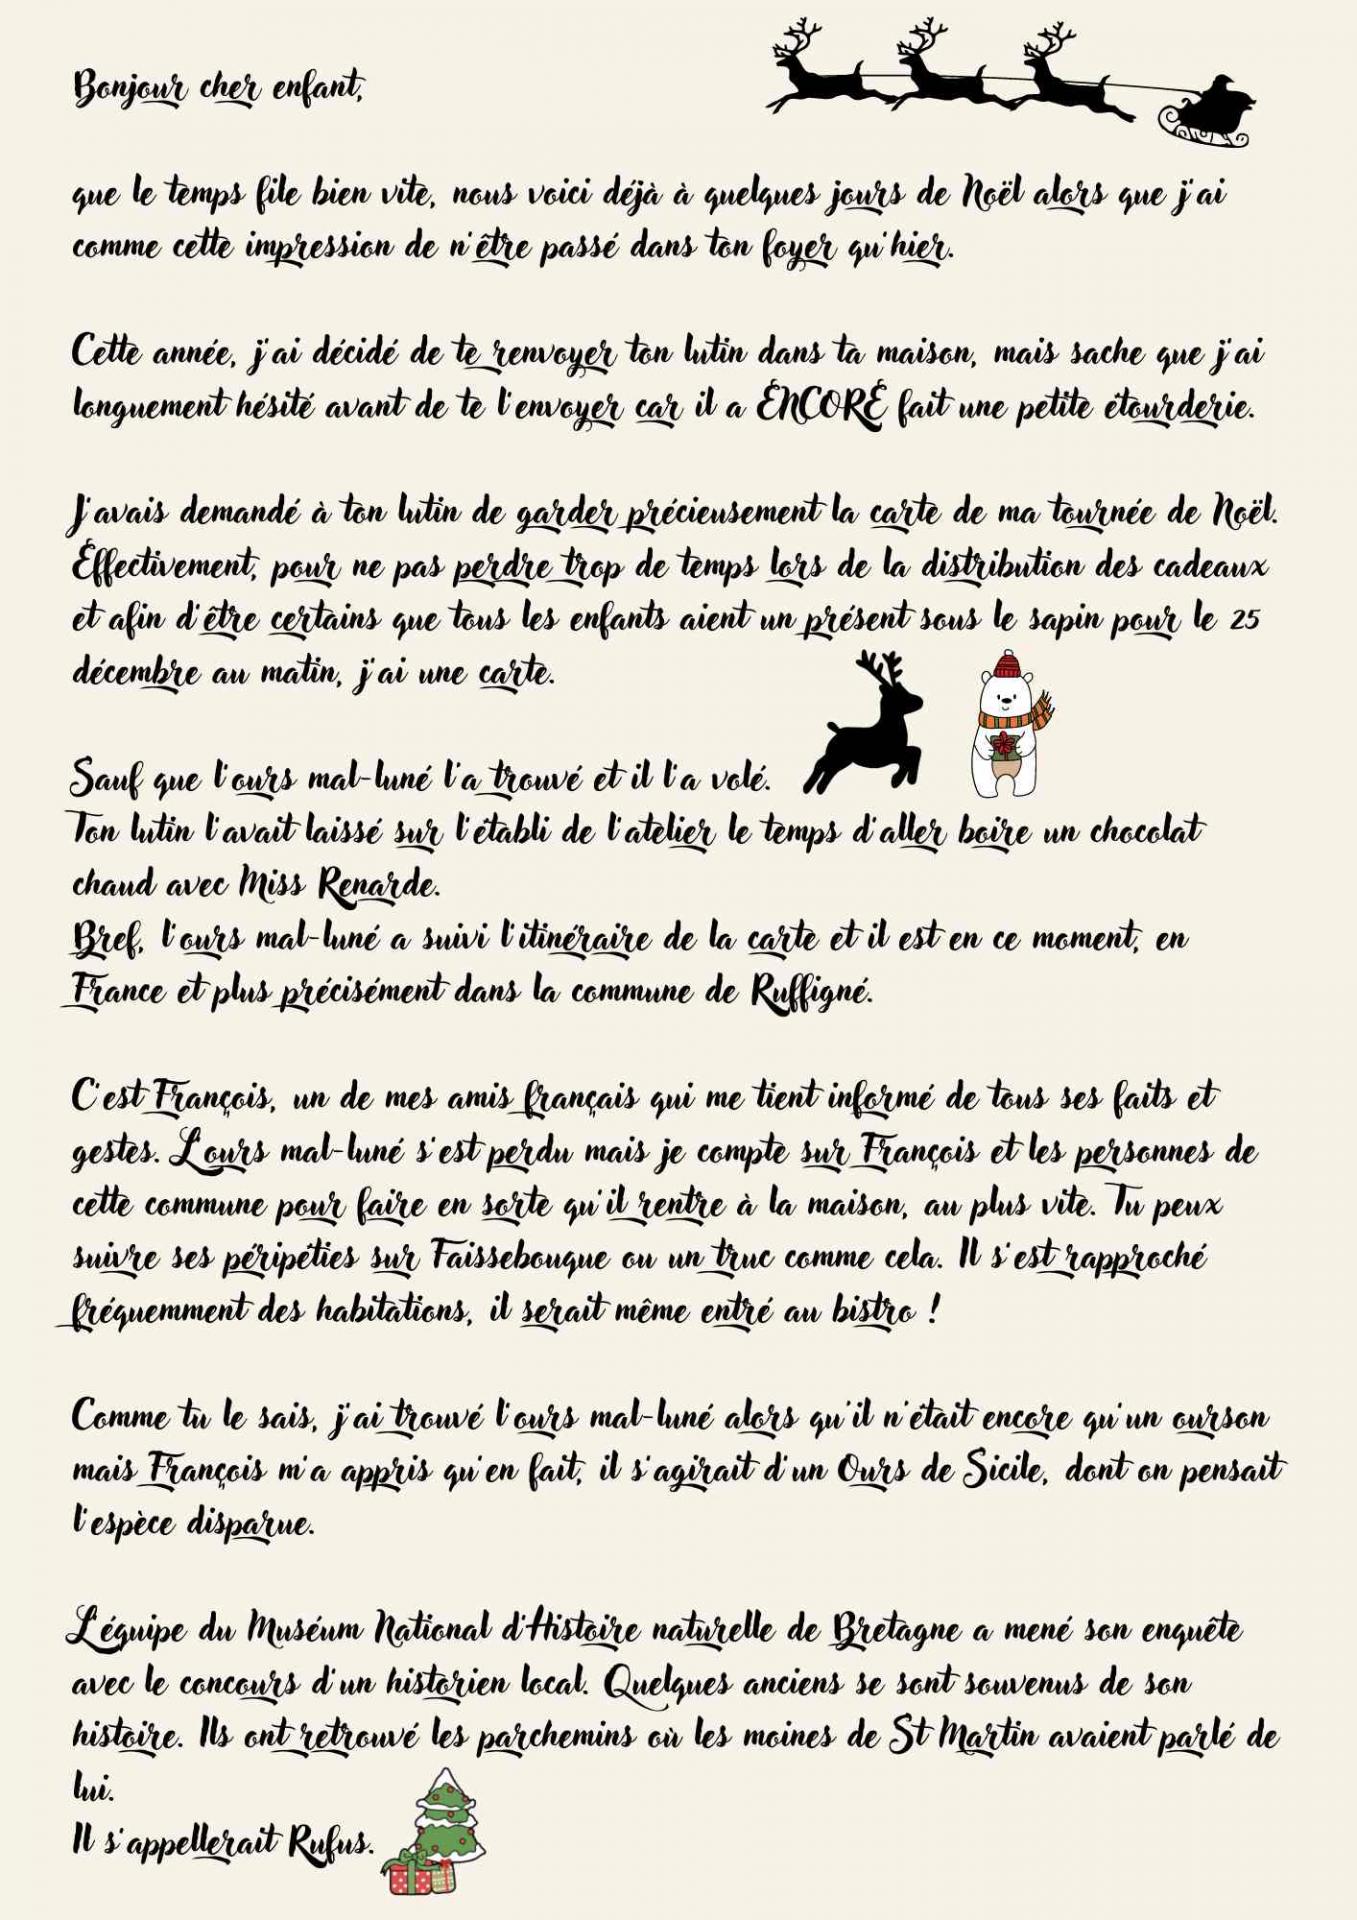 Bonjour cher enfant,
que le temps file bien vite, nous voici déjà à quelques jours de Noël alors que j'ai
comme cette impression de n'être passé dans ton foyer qu'hier.
Cette année, j'ai décidé de te renvoyer ton lutin dans ta maison, mais sache que j'ai
longuement hésité avant de te l'envoyer car il a ENCORE fait une petite étourderie.
J'avais demandé à ton lutin de garder précieusement la carte de ma tournée de Noël.
Effectivement, pour ne pas perdre trop de temps lors de la distribution des cadeaux
et afin d'être certains que tous les enfants aient un présent sous le sapin pour le 25
décembre au matin, j'ai une carte.
Sauf que l'ours mal-luné l'a trouvé et il l'a volé.
Ton lutin l'avait laissé sur l'établi de l'atelier le temps d'aller boire un chocolat
chaud avec Miss Renarde.
Bref, l'ours mal-luné a suivi l'itinéraire de la carte et il est en ce moment, en
France et plus précisément dans la commune de Ruffigné.
C'est François, un de mes amis français qui me tient informé de tous ses faits et
gestes. L'ours mal-luné s'est perdu mais je compte sur François et les personnes de
cette commune pour faire en sorte qu'il rentre à la maison, au plus vite. Tu peux
suivre ses péripéties sur Faissebouque ou un truc comme cela. Il s'est rapproché
fréquemment des habitations, il serait même entré au bistro !
Comme tu le sais, j'ai trouvé l'ours mal-luné alors qu'il n'était encore qu'un ourson
mais François m'a appris qu'en fait, il s'agirait d'un Ours de Sicile, dont on pensait
l'espèce disparue.
L'équipe du Muséum National d'Histoire naturelle de Bretagne a mené son enquête
avec le concours d'un historien local. Quelques anciens se sont souvenus de son
histoire. Ils ont retrouvé les parchemins où les moines de St Martin avaient parlé de
lui.
Il s'appellerait Rufus.